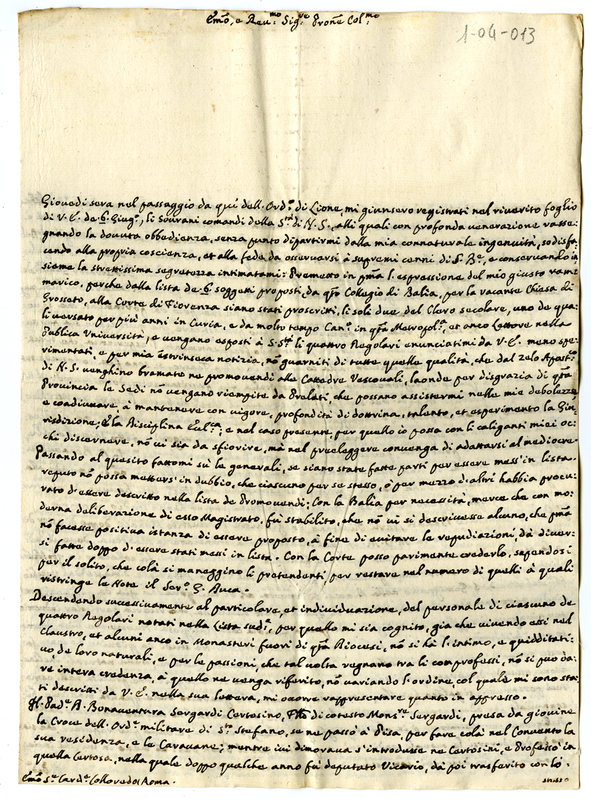 Em̃o, e Reu.mo Sig.re Prone Col.mo
1-04-013
Giouedi sera nel passaggio da qui dell'Ord.o di Lione, mi giunsero registrati nel riuerito foglio
di V. E. de 6. Giug.o, li Sourani comandi della S.tà di N. S., alli quali con profonda venerazione rasse:
gnando la douuta obbedienza, senza punto dipartirmi dalla mia connaturale ingenuità, sodisfa:
cendo alla propria coscienza, et alla fede da osseruarsi à supremi cenni di S. B.ne, e conseruando in:
sieme la strettissima segretezza intimatami: Premetto in p̃ma l'espressione del mio giusto ram:
marico, perche dalla lista de 6 soggetti proposti, da q̃to Collegio di Balìa, per la vacante Chiesa di
Grosseto, alla Corte di Fiorenza siano stati proscritti, li soli due del Clero secolare, uno de qua:
li versato per più anni in Curia, e da molto tempo Can.co in q̃ta Metropol.na, et anco Lettore nella
Publica Vniuersità, e vengano esposti à S. S.tà li quattro Regolari enunciatimi da V. E. meno spe:
rimentati, e per mia estrinseca notizia, nõ guarniti di tutte quelle qualità, che dal zelo Apost.co
di N. S. venghino bramate ne promouendi alle Cattedre Vescouali, laonde per disgrazia di q̃ta
Prouincia le Sedi nõ vengano riempite da Prelati, che possano assistermi nelle mie debolezze
e coadiuuare, à mantenere con vigore, profondità di dottrina, talento, et esperimento la Giu:
risdizione, e la Disciplina Eccl.ca; e nel caso presente, per quello io possa con li caliganti miei oc:
chi discernere, nõ vi sia da sfiorire, mà nel prescegliere conuenga di adattarsi al mediocre.
Passando al quesito fattomi sù le generali, se siano state fatte parti per essere mess'in lista
reputo nõ possa mettersi in dubbio, che ciascuno per se stesso, ò per mezzo d'altri habbia procu:
rato d'essere descritto nella lista de Promouendi; Con la Balìa per necessità, mercè che con mo:
derna deliberazione di esso Magistrato, fù stabilito, che nõ vi si descriuesse alcuno, che p̃ma
nõ facesse positiua istanza di essere proposto, à fine di euitare le repudiazioni, dà diuer:
si fatte doppo d'essere stati messi in lista. Con la Corte posso parimente crederlo, sapendosi
per il solito, che colà si maneggino li pretendenti, per restare nel numero di quelli à quali
ristringe la Note il Ser.o G. Duca.
Descendendo successiuamente al particolare, et indiuiduazione, del personale di ciascuno de
quattro Regolari notati nella Lista sud.a, per quello mi sia cognito, già che viuendo essi nel
Claustro, et alcuni anco in Monasteri fuori di q̃ta Diocesi, nõ si hà l'intimo, e quidditati:
uo, de loro naturali, e per le passioni, che tal volta regnano tra li comprofessi, nõ si può da:
re intera credenza, à quello ne venga riferito, nõ variando l'ordine, col quale mi sono sta:
ti descritti da V. E. nella sua lettera, mi occorre rappresentare quanto in appresso.
Il Pad.e D. Bonauentura Sergardi Certosino, F̃tto di cotesto Mons.re Sergardi, presa da giouine
la Croce dell'Ord.e militare di S.to Stefano, se ne passò à Pisa, per fare colà nel Conuento la
sua residenza, e le Carauane; mentre iui dimoraua s'introdusse ne Certosini, e Professò in
quella Certosa, nella quale doppo qualche anno fù deputato Vicario, dà poi trasferito con lo
Em̃o S.r Card.le Colloredo / Roma.
stesso